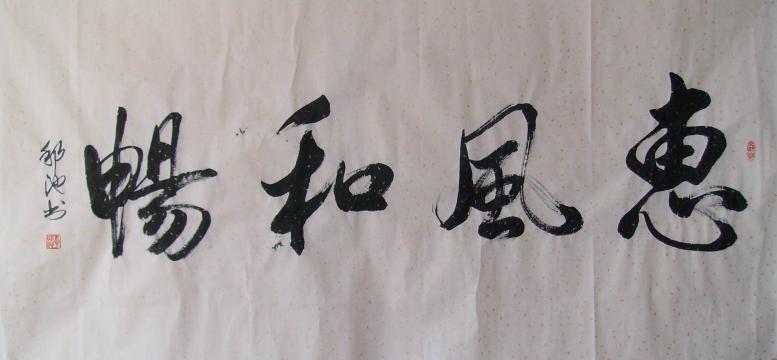 惠風和暢
池书